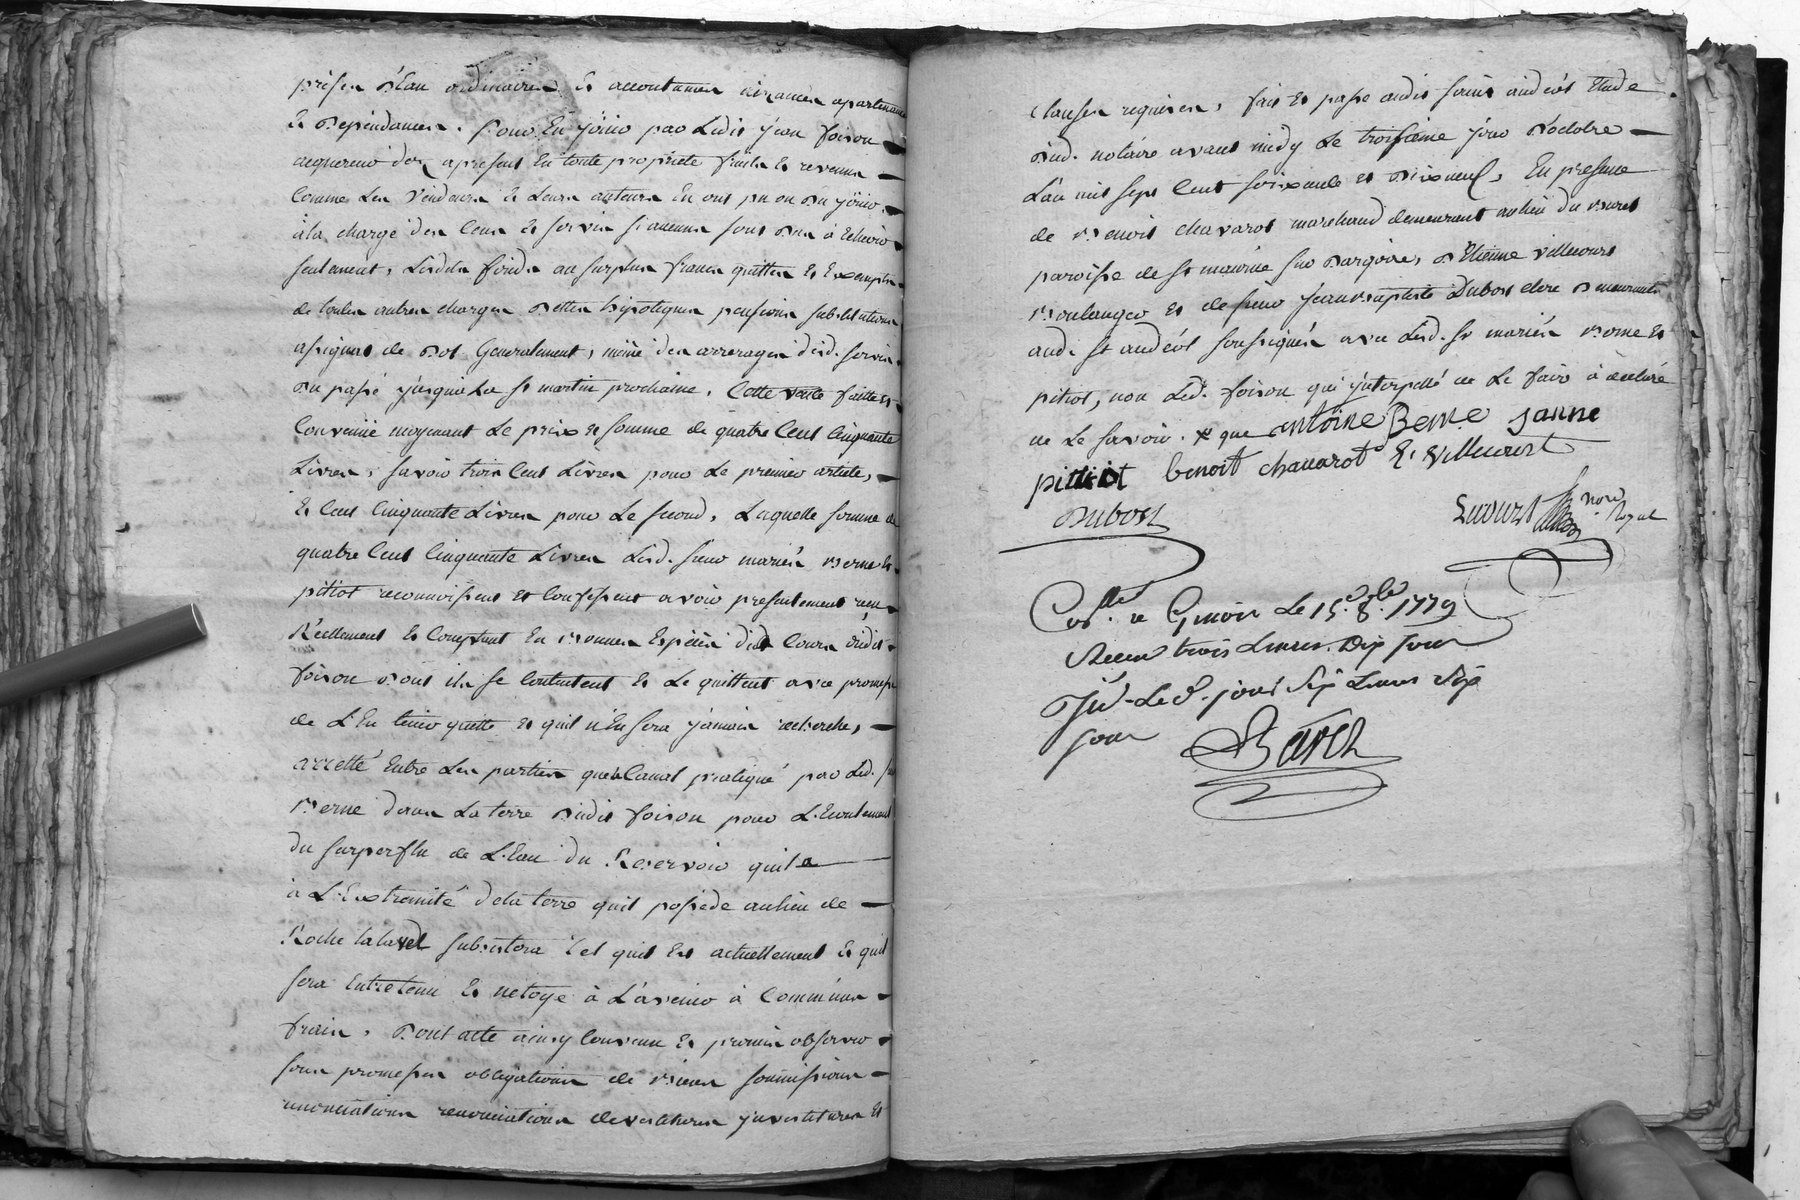 prises d'Eau ordinaires et accoutumées aizances apartenances
et Dependances. Pour En jöuir par Ledit jean foison
acquereur des apresent En toute propriete fruits et revenus
Comme Les Vendeurs et Leurs auteurs En ont pu ou Du jöuir,
à la charge des Cens et servis si aucuns sont Dus à Echeoir
seulement, Lesdits fonds au surplus francs quittes et Exempts
de toutes autres charges Dettes hipoteques pensions substitutions
assignat de Dot Generalement, même des arrerages desd. servis
Du passé jusqu'a La st martin prochaine. Cette vente faitte et
Convenüe moyenant Le prix et somme de quatre Cent Cinquante
Livres, savoir trois Cent Livres pour Le premier article,
Et Cent Cinquante Livres pour Le second, Laquelle somme de
quatre Cent Cinquante Livres Lesd. sieur mariés Berne et
pitiot reconnoissent et Confessent avoir presentement reçu
Réellement et Comptant En Bonnes Espèces de Cours dudit
foison Dont ils se Contentent et Le quittent avec promesse
de L'En tenir quitte et qu'il n'En sera jamais recherché,
arretté Entre Les parties que le Canal pratiqué par Led. sr
Berne dans La terre Dudit foison pour L'Ecoulement
du superflu de L'Eau du Reservoir quil a
à L'Extremité de la terre quil possede au lieu de
Roche lataved subsistera tel quil Est actuellement et quil
sera Entretenu et netoyé à L'avenir à Communs
frais. Dont acte ainsy Convenu et promis observer
sous promesses obligations de Biens soumissions
renonciations devestitures jnvestitures et
Clauses requises, fait et passé audit saint andéol Etude
Dud. notaire avant midy Le troisième jour D'octobre
L'an mil sept Cent soixante et Dix neuf, En presence
de Benoit chavarot marchand demeurant au lieu du
paroisse de st maurice sur Dargoire, D'Etienne Villecourt
Boulanger et de sieur jean Baptiste Dubost clerc Demeurants
aud. st andéol soussignés avec Lesd. sr mariés Berne et
pitiot, non Led. foison qui jnterpellé de Le faire à declaré
ne Le savoir. que antoine Berne janne
pitiot benoit chavarot E. Villecourt
Dubost
nore Royal
Collé. a Givors Le 15e. 8bre. 1779
Recu trois Livres Dix sous
Jd. Led. jour Six Livres Dix
sous